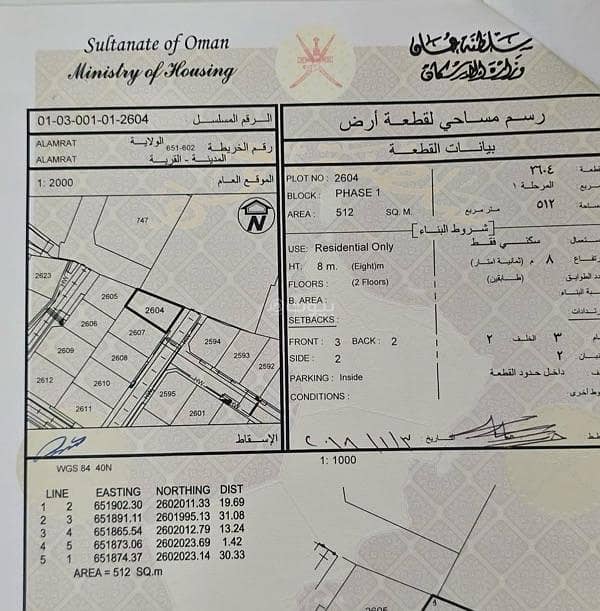 Sultanate of Oman
Ministry of Housing
سلطنة عمان
وزارة الإسكان
01-03-001-01-2604 الرقم المسلسل
ALAMRAT الولاية
651-602 رقم الخريطة
ALAMRAT المدينة - القرية
1: 2000 الموقع العام
747
N
2623
2605
2604
2606
2607
2594
2609
2608
2593
2592
2612
2610
2595
2611
2601
الإسقاط
رسم مساحي لقطعة أرض
بيانات القطعة
PLOT NO : 2604
٢٦٠٤
BLOCK : PHASE 1
المرحلة ١
AREA : 512 SQ. M.
متر مربع ٥١٢
شروط البناء
USE: Residential Only
سكني فقط
HT: 8 m. (Eight)m
٨ م (ثمانية امتار)
FLOORS : (2 Floors)
(طابقين)
B. AREA :
SETBACKS:
FRONT : 3 BACK : 2
٣ الخلف ٢
SIDE : 2
٢
PARKING : Inside
داخل حدود القطعة
CONDITIONS :
تاريخ :
WGS 84 40N
1: 1000
LINE EASTING NORTHING DIST
1 2 651902.30 2602011.33 19.69
2 3 651891.11 2601995.13 31.08
3 4 651865.54 2602012.79 13.24
4 5 651873.06 2602023.69 1.42
5 1 651874.37 2602023.14 30.33
AREA = 512 SQ.m
2605